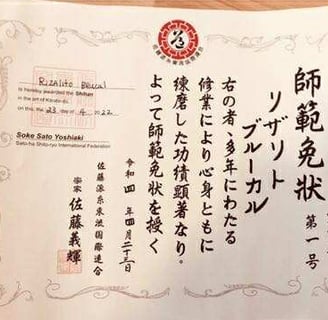 師範免状
第一号
リザリト
ブルーカル
右の者、多年にわたる
修業により心身ともに
練磨した功績顕著なり。
よって師範免状を授く
令和四年四月二十三日
佐藤派糸東流国際連合
宗家 佐藤義輝
Rizalito Brucal
is hereby awarded the Shihan
in the art of Karate-do.
on this 23 day of 4 2022
Soke Sato Yoshiaki
Sato-ha Shito-ryu International Federation